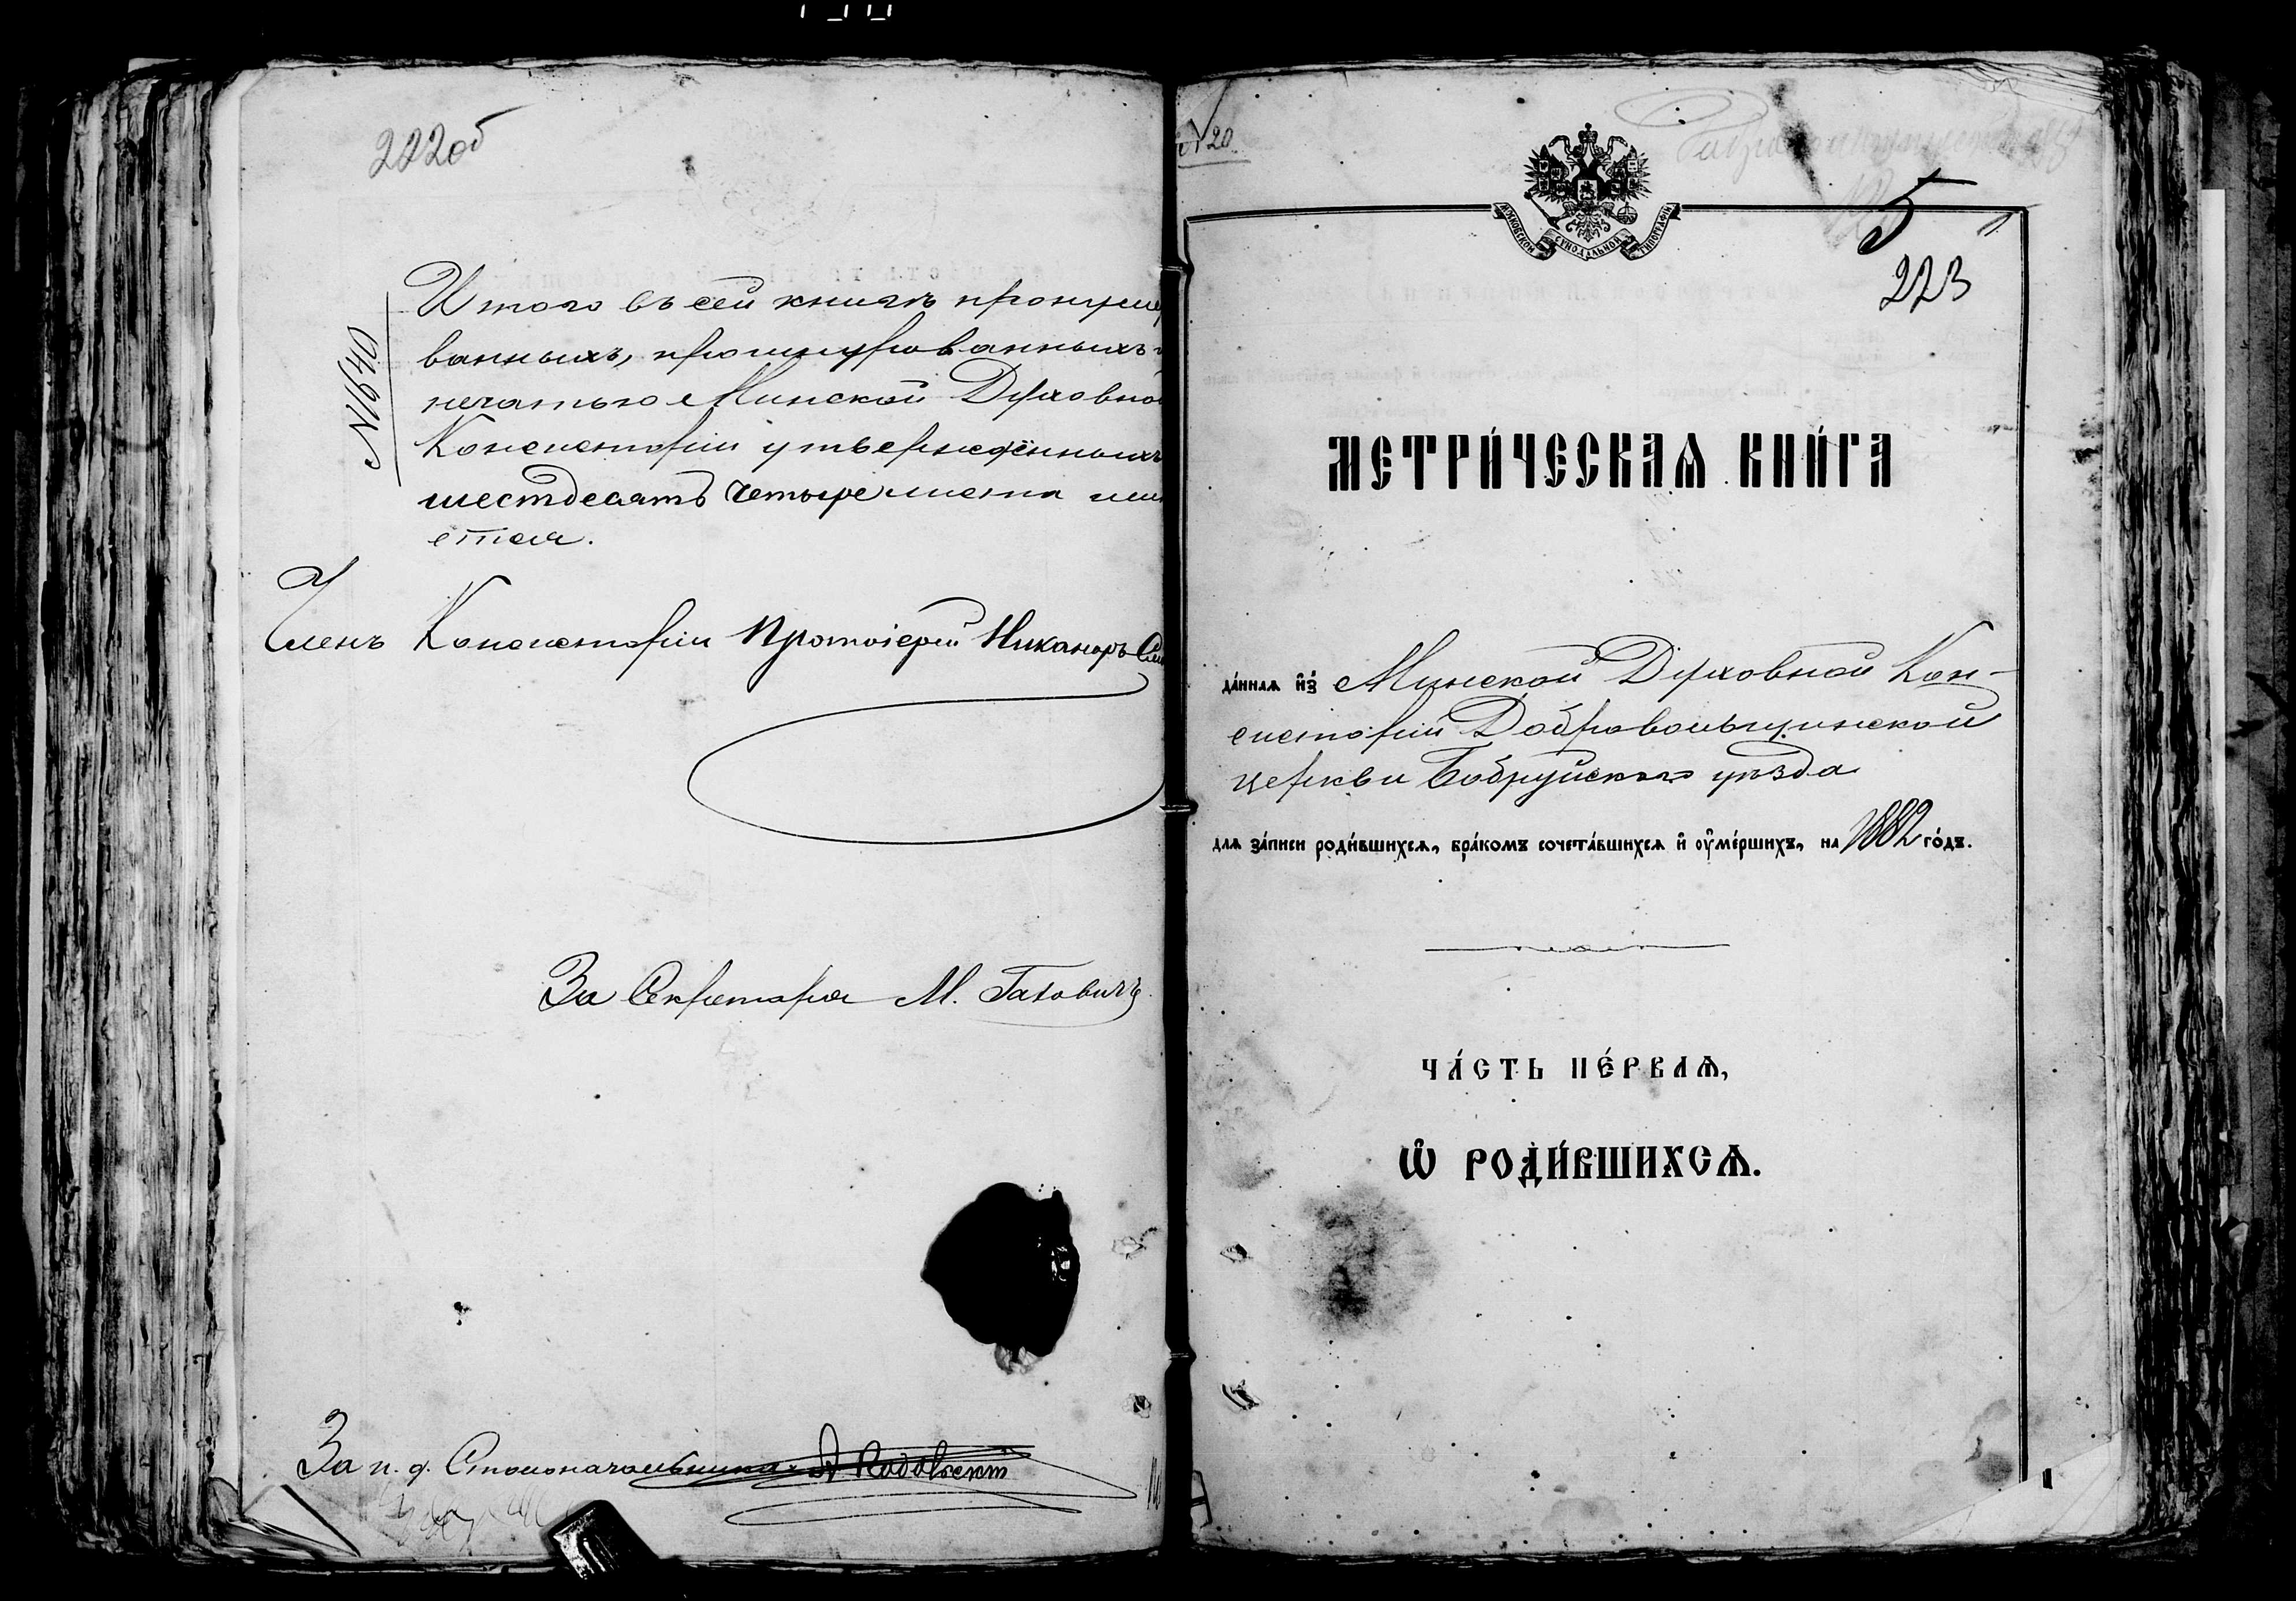 222об
№1640
Итого въ сей книгѣ пронумеро
ванныхъ, прошнурованныхъ и
печатью Минской Духовной
Консисторіи утвержденныхъ
шестдесятъ четыре листа
Членъ Консисторіи Протоіерей Никаноръ
За Секретаря М. Гахович
За и. д. Столоначальника А
№20
5
223
МОСКОВСКОЙ СѴНОДАЛЬНОЙ ТИПОГРАФІИ
МЕТРИ́ЧЕСКАѦ КНИ́ГА
да́ннаѧ и҆з̾ Минской Духовной Кон-
систоріи Добровольщинской
церкви Бобруйскаго уѣзда
длѧ за́писи роди́вшихсѧ, бра́комъ сочета́вшихсѧ и҆ ѹ҆ме́ршихъ, на 1882 го́дъ.
ЧА́СТЬ ПЕ́РВАѦ,
Ѽ РОДИ́ВШИХСѦ.